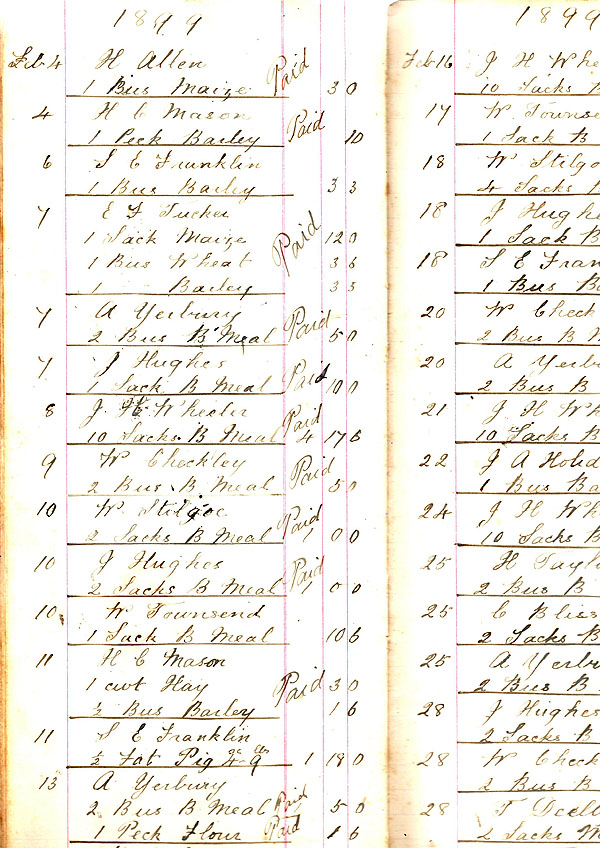 1899
Feb 4 H Allen
1 Bus Maize Paid 3 0
4 H C Mason
1 Peck Barley Paid 10
6 S E Franklin
1 Bus Barley 3 3
7 E F Tucker
1 Sack Maize Paid 12 0
1 Bus Wheat 3 6
1 Barley 3 3
7 A Yerbury
2 Bus B Meal Paid 5 0
7 J Hughes
1 Sack B Meal Paid 10 0
8 J H Wheeler
10 Sacks B Meal Paid 4 17 6
9 W Checkley
2 Bus B Meal Paid 5 0
10 W Stilgoe
2 Sacks B Meal Paid 0 0
10 J Hughes
2 Sacks B Meal Paid 1 0 0
10 W Townsend
1 Sack B Meal 10 6
11 H C Mason
1 cwt Hay Paid 3 0
½ Bus Barley 1 6
11 S E Franklin
½ Fat Pig 9 1 18 0
13 A Yerbury
2 Bus B Meal Paid 5 0
1 Peck Flour Paid 1 6
1899
Feb 16 J H Whe
10 Sacks B
17 W Townse
1 Sack B
18 W Stilgo
4 Sacks B
18 J Hughe
1 Sack B
18 S E Fran
1 Bus Ba
20 W Check
2 Bus B M
20 A Yerb
2 Bus B
21 J H Wh
10 Sacks B
22 J A
1 Bus Ba
24 J H Wh
10 Sacks B
25 H Tayl
2 Bus B
25 C Bliss
2 Sacks B
25 A Yerbu
2 Bus B
28 J Hughes
2 Sacks B
28 W Check
2 Bus B
28 T
2 Sacks M